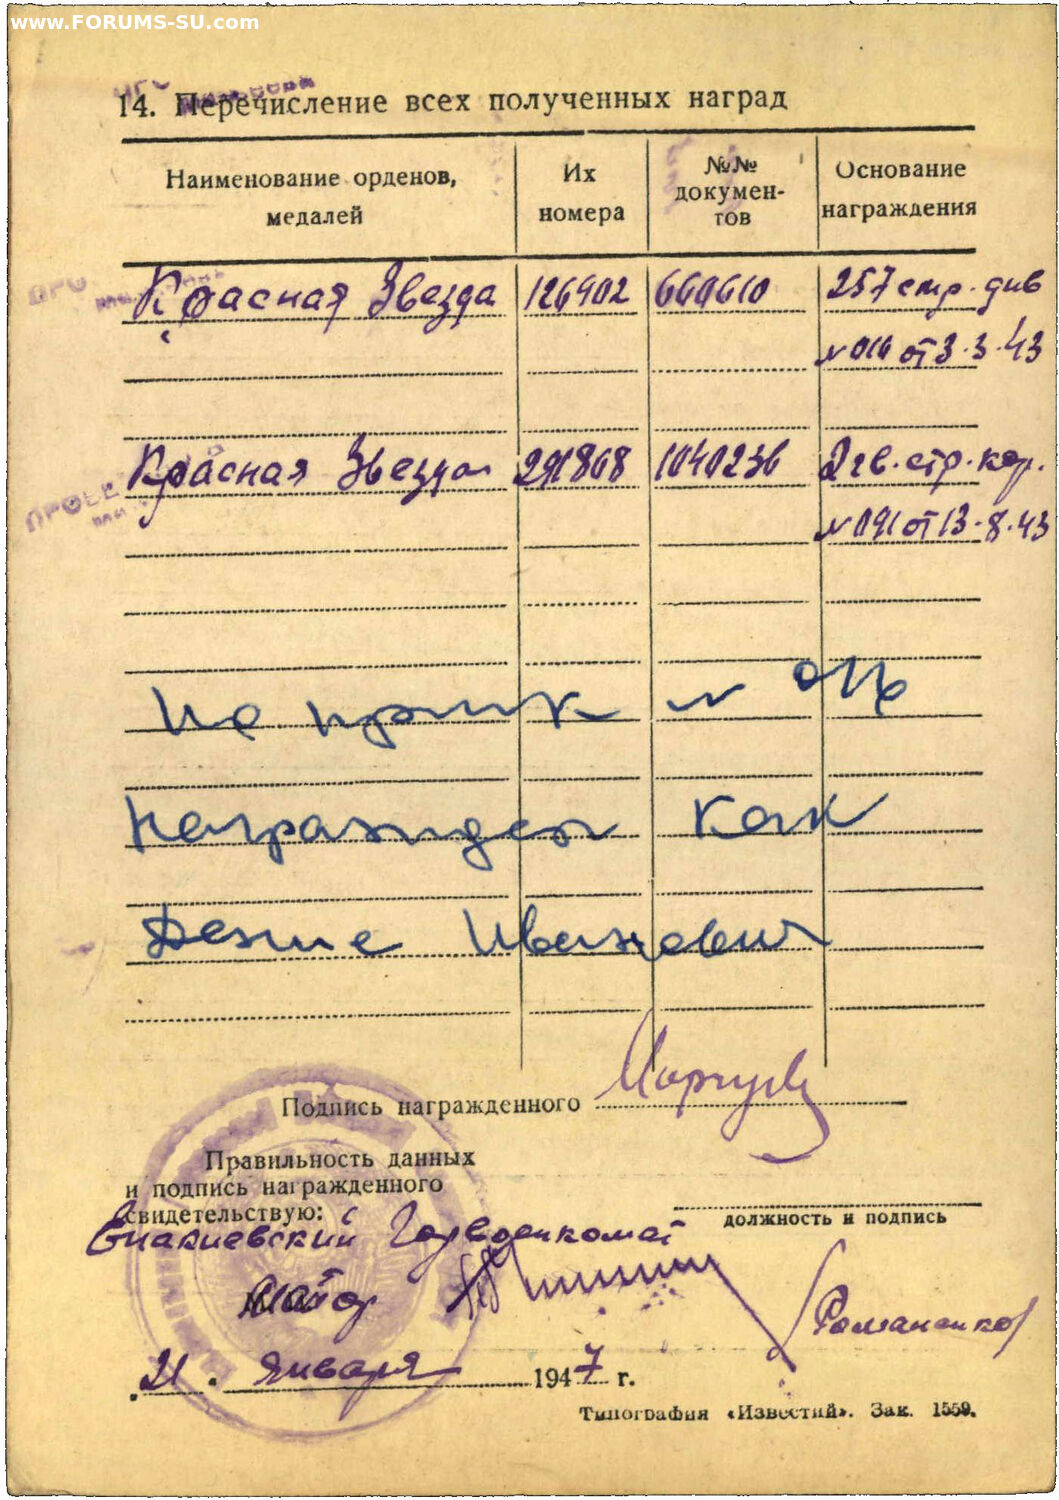 www.FORUMS-SU.com
14. Перечисление всех полученных наград
Наименование орденов, медалей
Их номера
№№ документов
Основание награждения
Красная Звезда 126902 660610 257 стр. див
№ 016 от 3.3.43
Красная Звезда 291868 1040236 2 гв. стр. кор.
№ 091 от 13.8.43
По приик № 016
Награжден как
Денис Иванович
Подпись награжденного
Правильность данных
и подпись награжденного
свидетельствую:
должность и подпись
Енакиевский Горвоенкомат
майор
Романенко
21 . января 1947 г.
Типография «Известий». Зак. 1559.